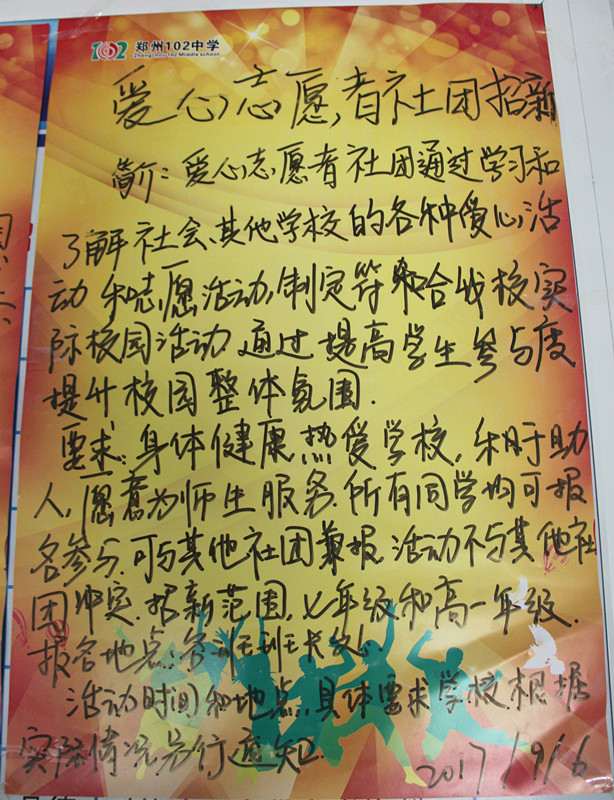 102 郑州102中学
Zhengzhou 102 Middle school
爱心志愿者社团招新
简介：爱心志愿者社团通过学习和
了解社会、其他学校的各种爱心活
动和志愿活动，制定符合我校实
际校园活动 通过提高学生参与度
提升校园整体氛围.
要求：身体健康 热爱学校，乐于助
人，愿意为师生服务.所有同学均可报
名参与.可与其他社团兼报 活动不与其他社
团冲突.招新范围，七年级和高一年级.
报名地点：各班班长处.
活动时间和地点，具体要求学校根据
实际情况另行通知.
2017/9/6